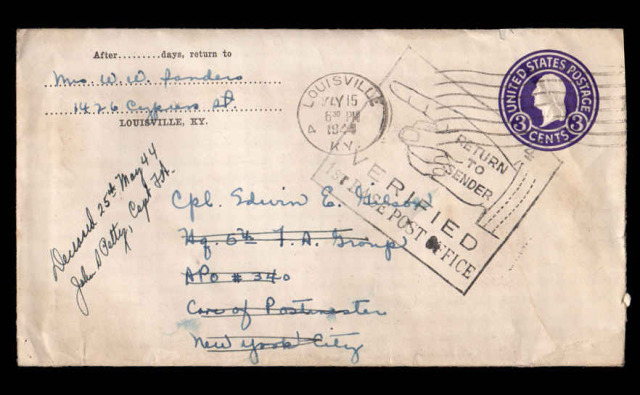 After.........days, return to
Mrs. W. W. Sanders
1426 Cypress St.
LOUISVILLE, KY.
LOUISVILLE
MAY 15
6 30 PM
1944
KY.
UNITED STATES POSTAGE
3 CENTS 3
RETURN
TO
SENDER
VERIFIED
1ST BASE POST OFFICE
Deceased 25th May 44
John S Petty, Capt FA.
Cpl. Edwin E. Gilson
Hq. 6th F.A. Group
APO # 340
Care of Postmaster
New York City